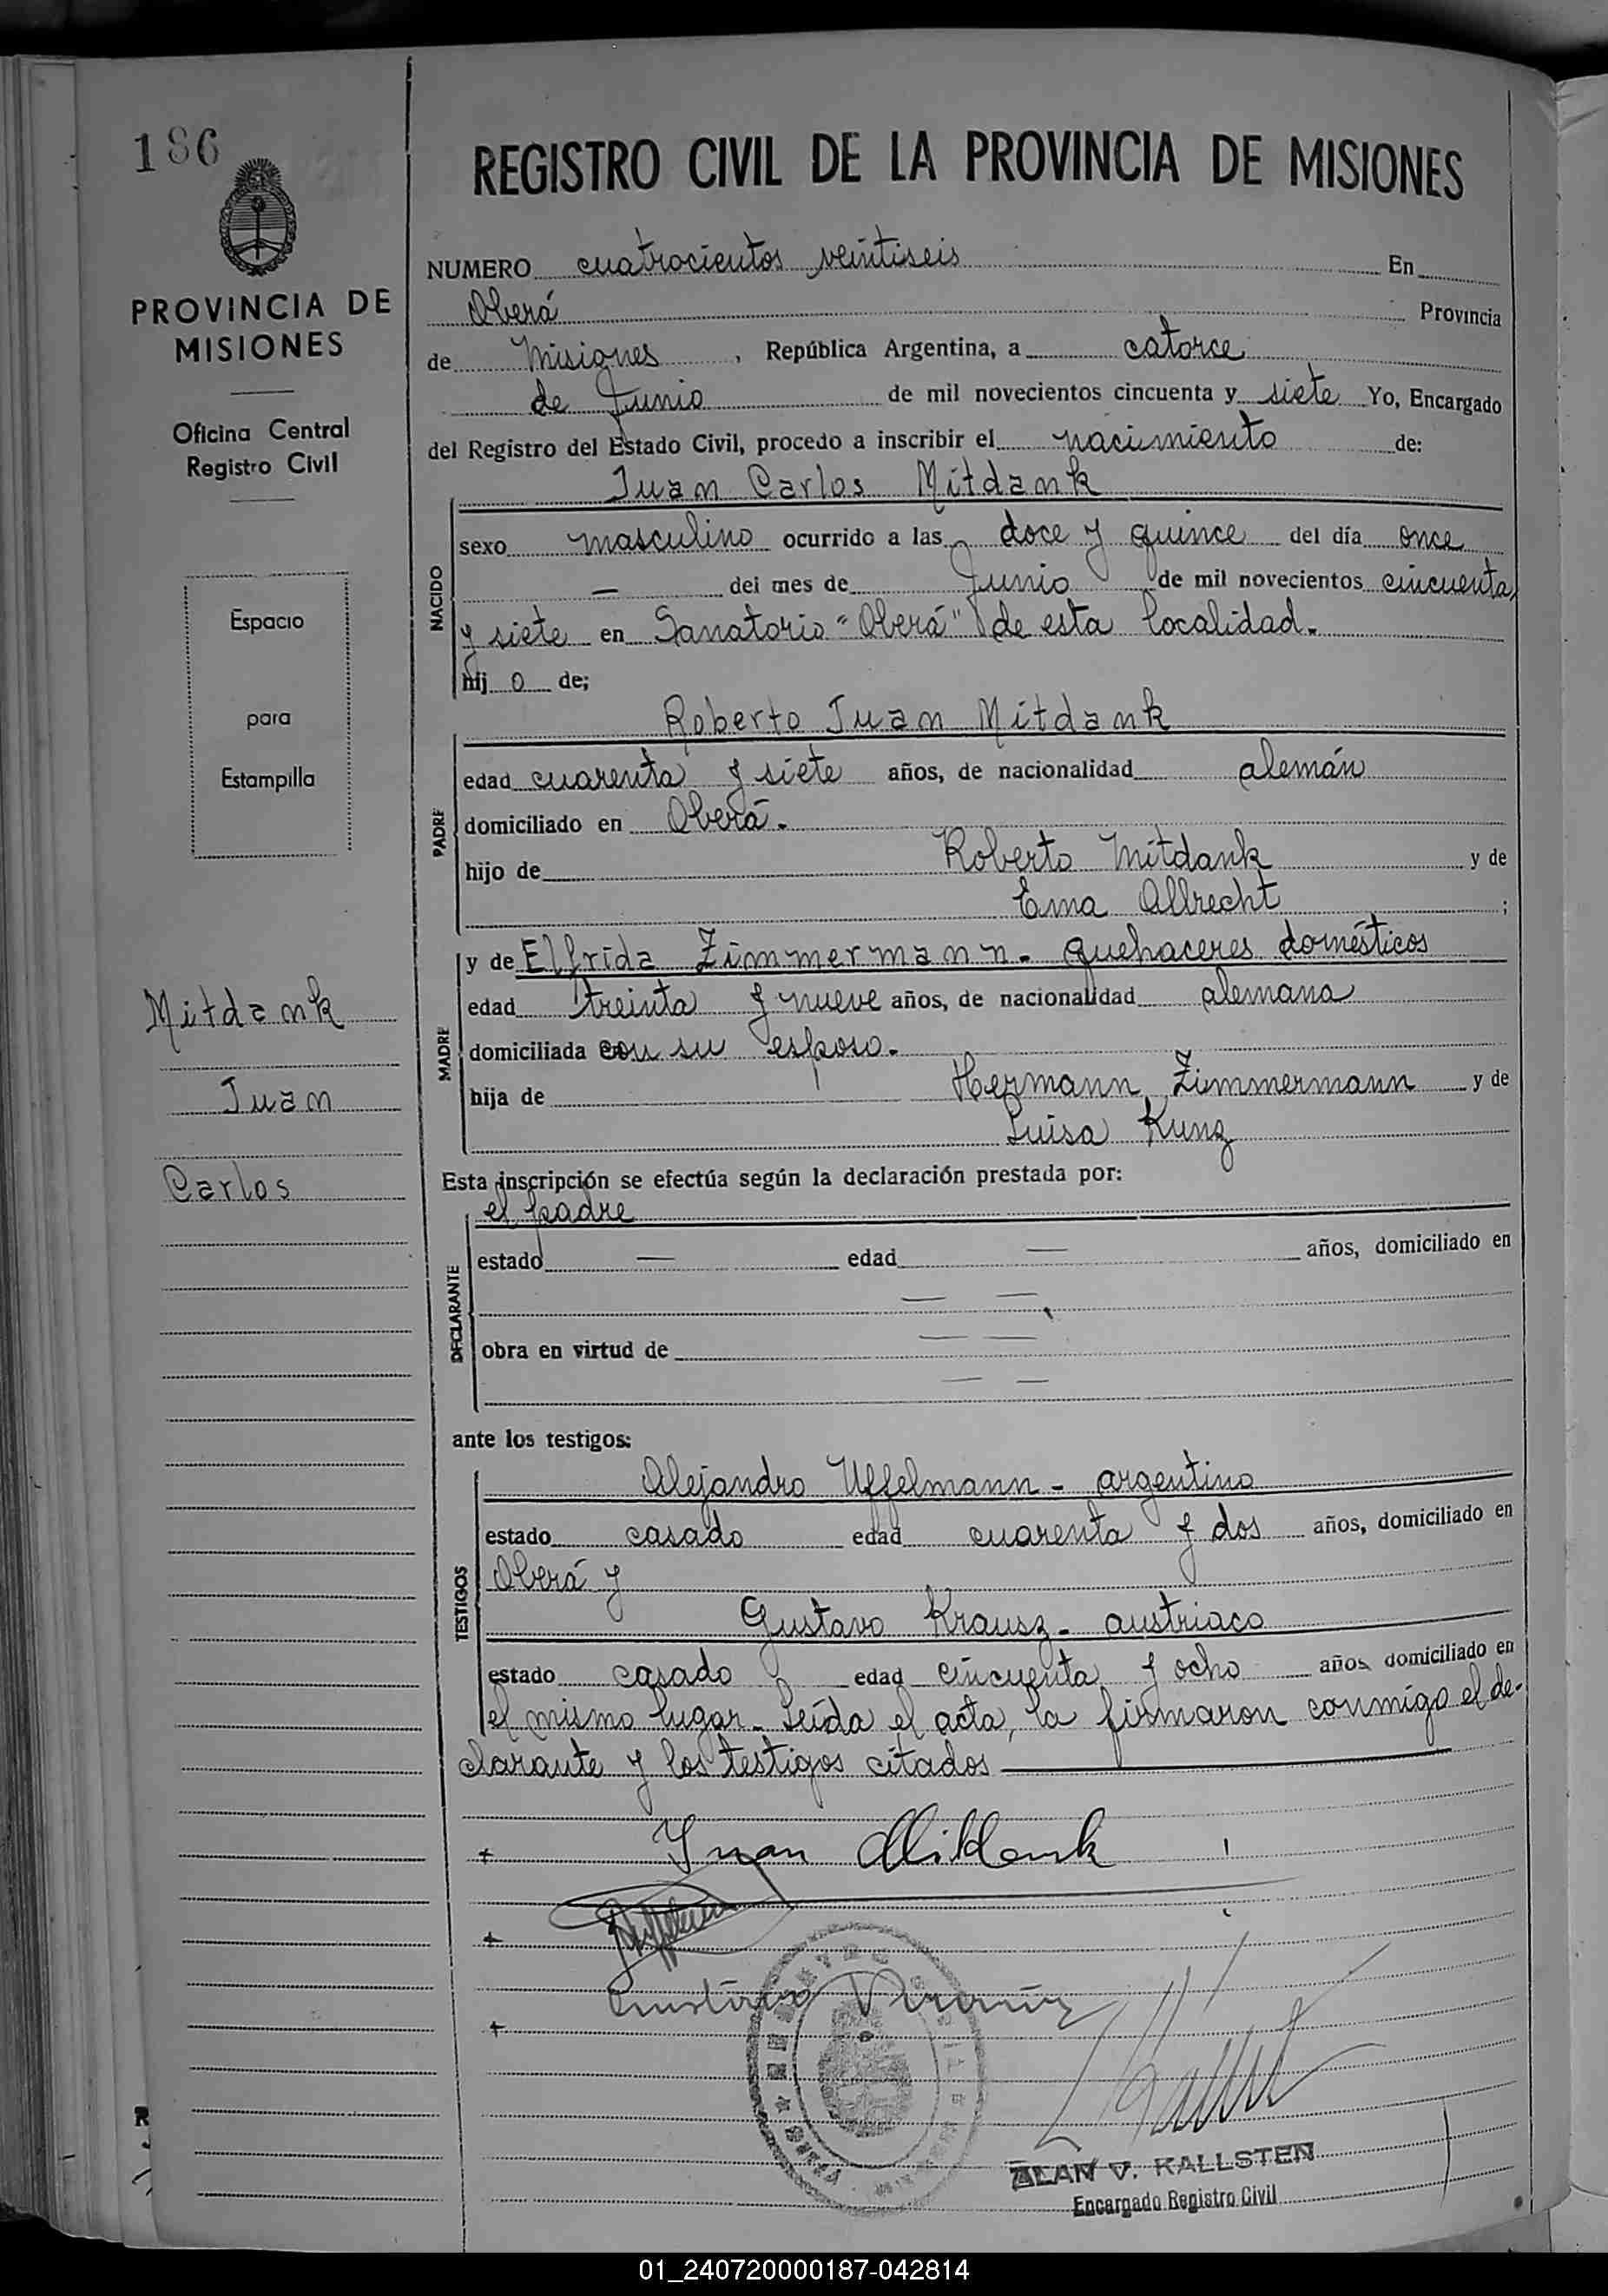 186
PROVINCIA DE
MISIONES
Oficina Central
Registro Civil
Espacio
para
Estampilla
Mitdank
Juan
Carlos
REGISTRO CIVIL DE LA PROVINCIA DE MISIONES
NUMERO cuatrocientos veintiseis En
Oberá Provincia
de Misiones, República Argentina, a catorce
de Junio de mil novecientos cincuenta y siete Yo, Encargado
del Registro del Estado Civil, procedo a inscribir el nacimiento de:
Juan Carlos Mitdank
NACIDO
sexo masculino ocurrido a las doce y quince del día once
— del mes de Junio de mil novecientos cincuenta
y siete en Sanatorio "Oberá" de esta localidad.
hij o de;
Roberto Juan Mitdank
PADRE
edad cuarenta y siete años, de nacionalidad alemán
domiciliado en Oberá.
hijo de Roberto Mitdank y de
Ema Albrecht ;
MADRE
y de Elfrida Zimmermann. quehaceres domésticos
edad treinta y nueve años, de nacionalidad alemana
domiciliada con su esposo.
hija de Hermann Zimmermann y de
Luisa Kunz
Esta inscripción se efectúa según la declaración prestada por:
el padre
DECLARANTE
estado — edad — años, domiciliado en
— —
obra en virtud de — —
— —
ante los testigos:
TESTIGOS
Alejandro Uffelmann - argentino
estado casado edad cuarenta y dos años, domiciliado en
Oberá y
Gustavo Krausz - austriaco
estado casado edad cincuenta y ocho años domiciliado en
el mismo lugar. Leída el acta, la firmaron conmigo el de-
clarante y los testigos citados
Juan Mitdank
ALAN V. KALLSTEN
Encargado Registro Civil
01_240720000187-042814